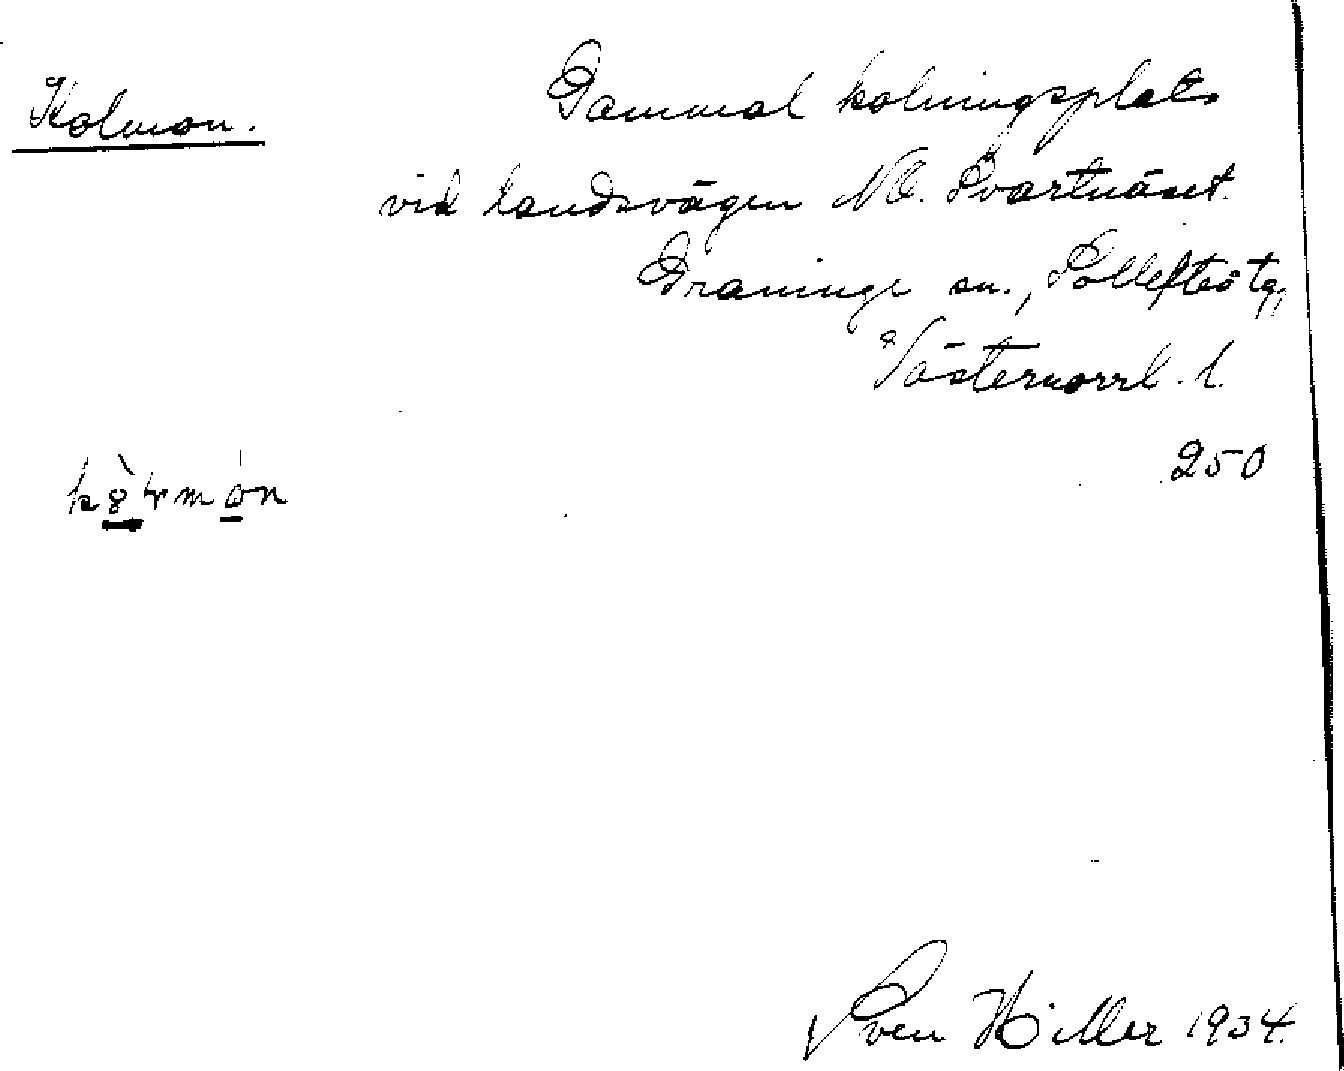 Kolmon.
Gammal kolningsplats
vid landsvägen NO. Svartnäset.
Graninge sn., Sollefteå tg,
Västernorrl. l.
250
Sven Hiller 1934.